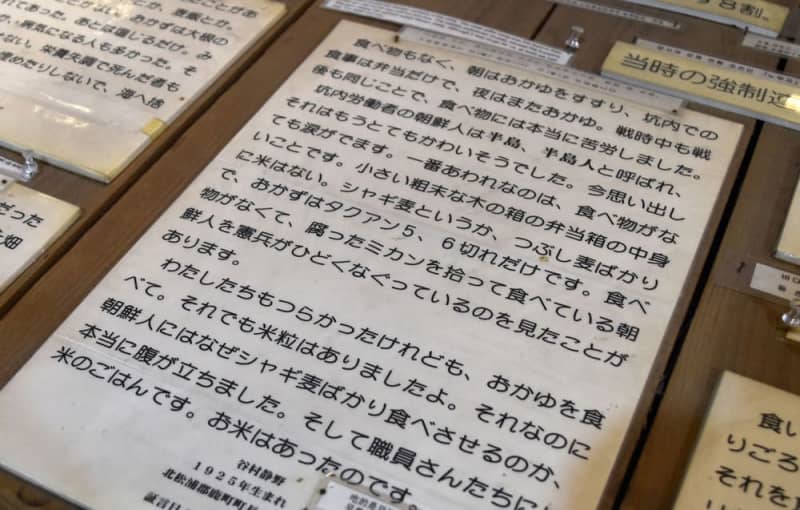 食べ物もなく、朝はおかゆをすすり、坑内での
食事は弁当だけで、夜はまたおかゆ。戦時中も戦
後も同じことで、食べ物には本当に苦労しました。
坑内労働者の朝鮮人は半島、半島人と呼ばれ、
それはもうとてもかわいそうでした。今思い出し
ても涙がでます。一番あわれなのは、食べ物がな
いことです。小さい粗末な木の箱の弁当箱の中身
に米はない。シャギ麦というか、つぶし麦ばかり
で、おかずはタクアン5、6切れだけです。食べ
物がなくて、腐ったミカンを拾って食べている朝
鮮人を憲兵がひどくなぐっているのを見たことが
あります。
わたしたちもつらかったけれども、おかゆを食
べて。それでも米粒はありましたよ。それなのに
朝鮮人にはなぜシャギ麦ばかり食べさせるのか、
本当に腹が立ちました。そして職員さんたちに
米のごはんです。お米はあったのです。
谷村静野
1925年生まれ
北松浦郡鹿町町
証言日
おかずは大根の
であった。あとは塩じるだけ。み
病気になる人も多かった。そ
ない。栄養失調で死んだ者も
埋めたりしないで、海へ捨
だった
畑
8割。
当時の強制
食い
りごろ
それを